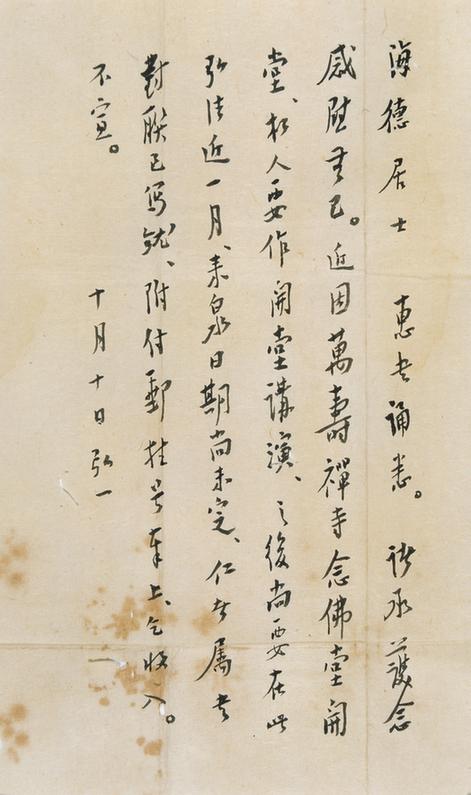 海德居士　惠書誦悉。諸承護念
感慰無已。近因萬壽禪寺念佛堂開
堂、相人要作開堂講演、之後尚要在此
弘法近一月、来泉日期尚未定、仁者属書
對聯已寫就、附付郵挂号奉上、乞收入。
不宣。
十月十日 弘一